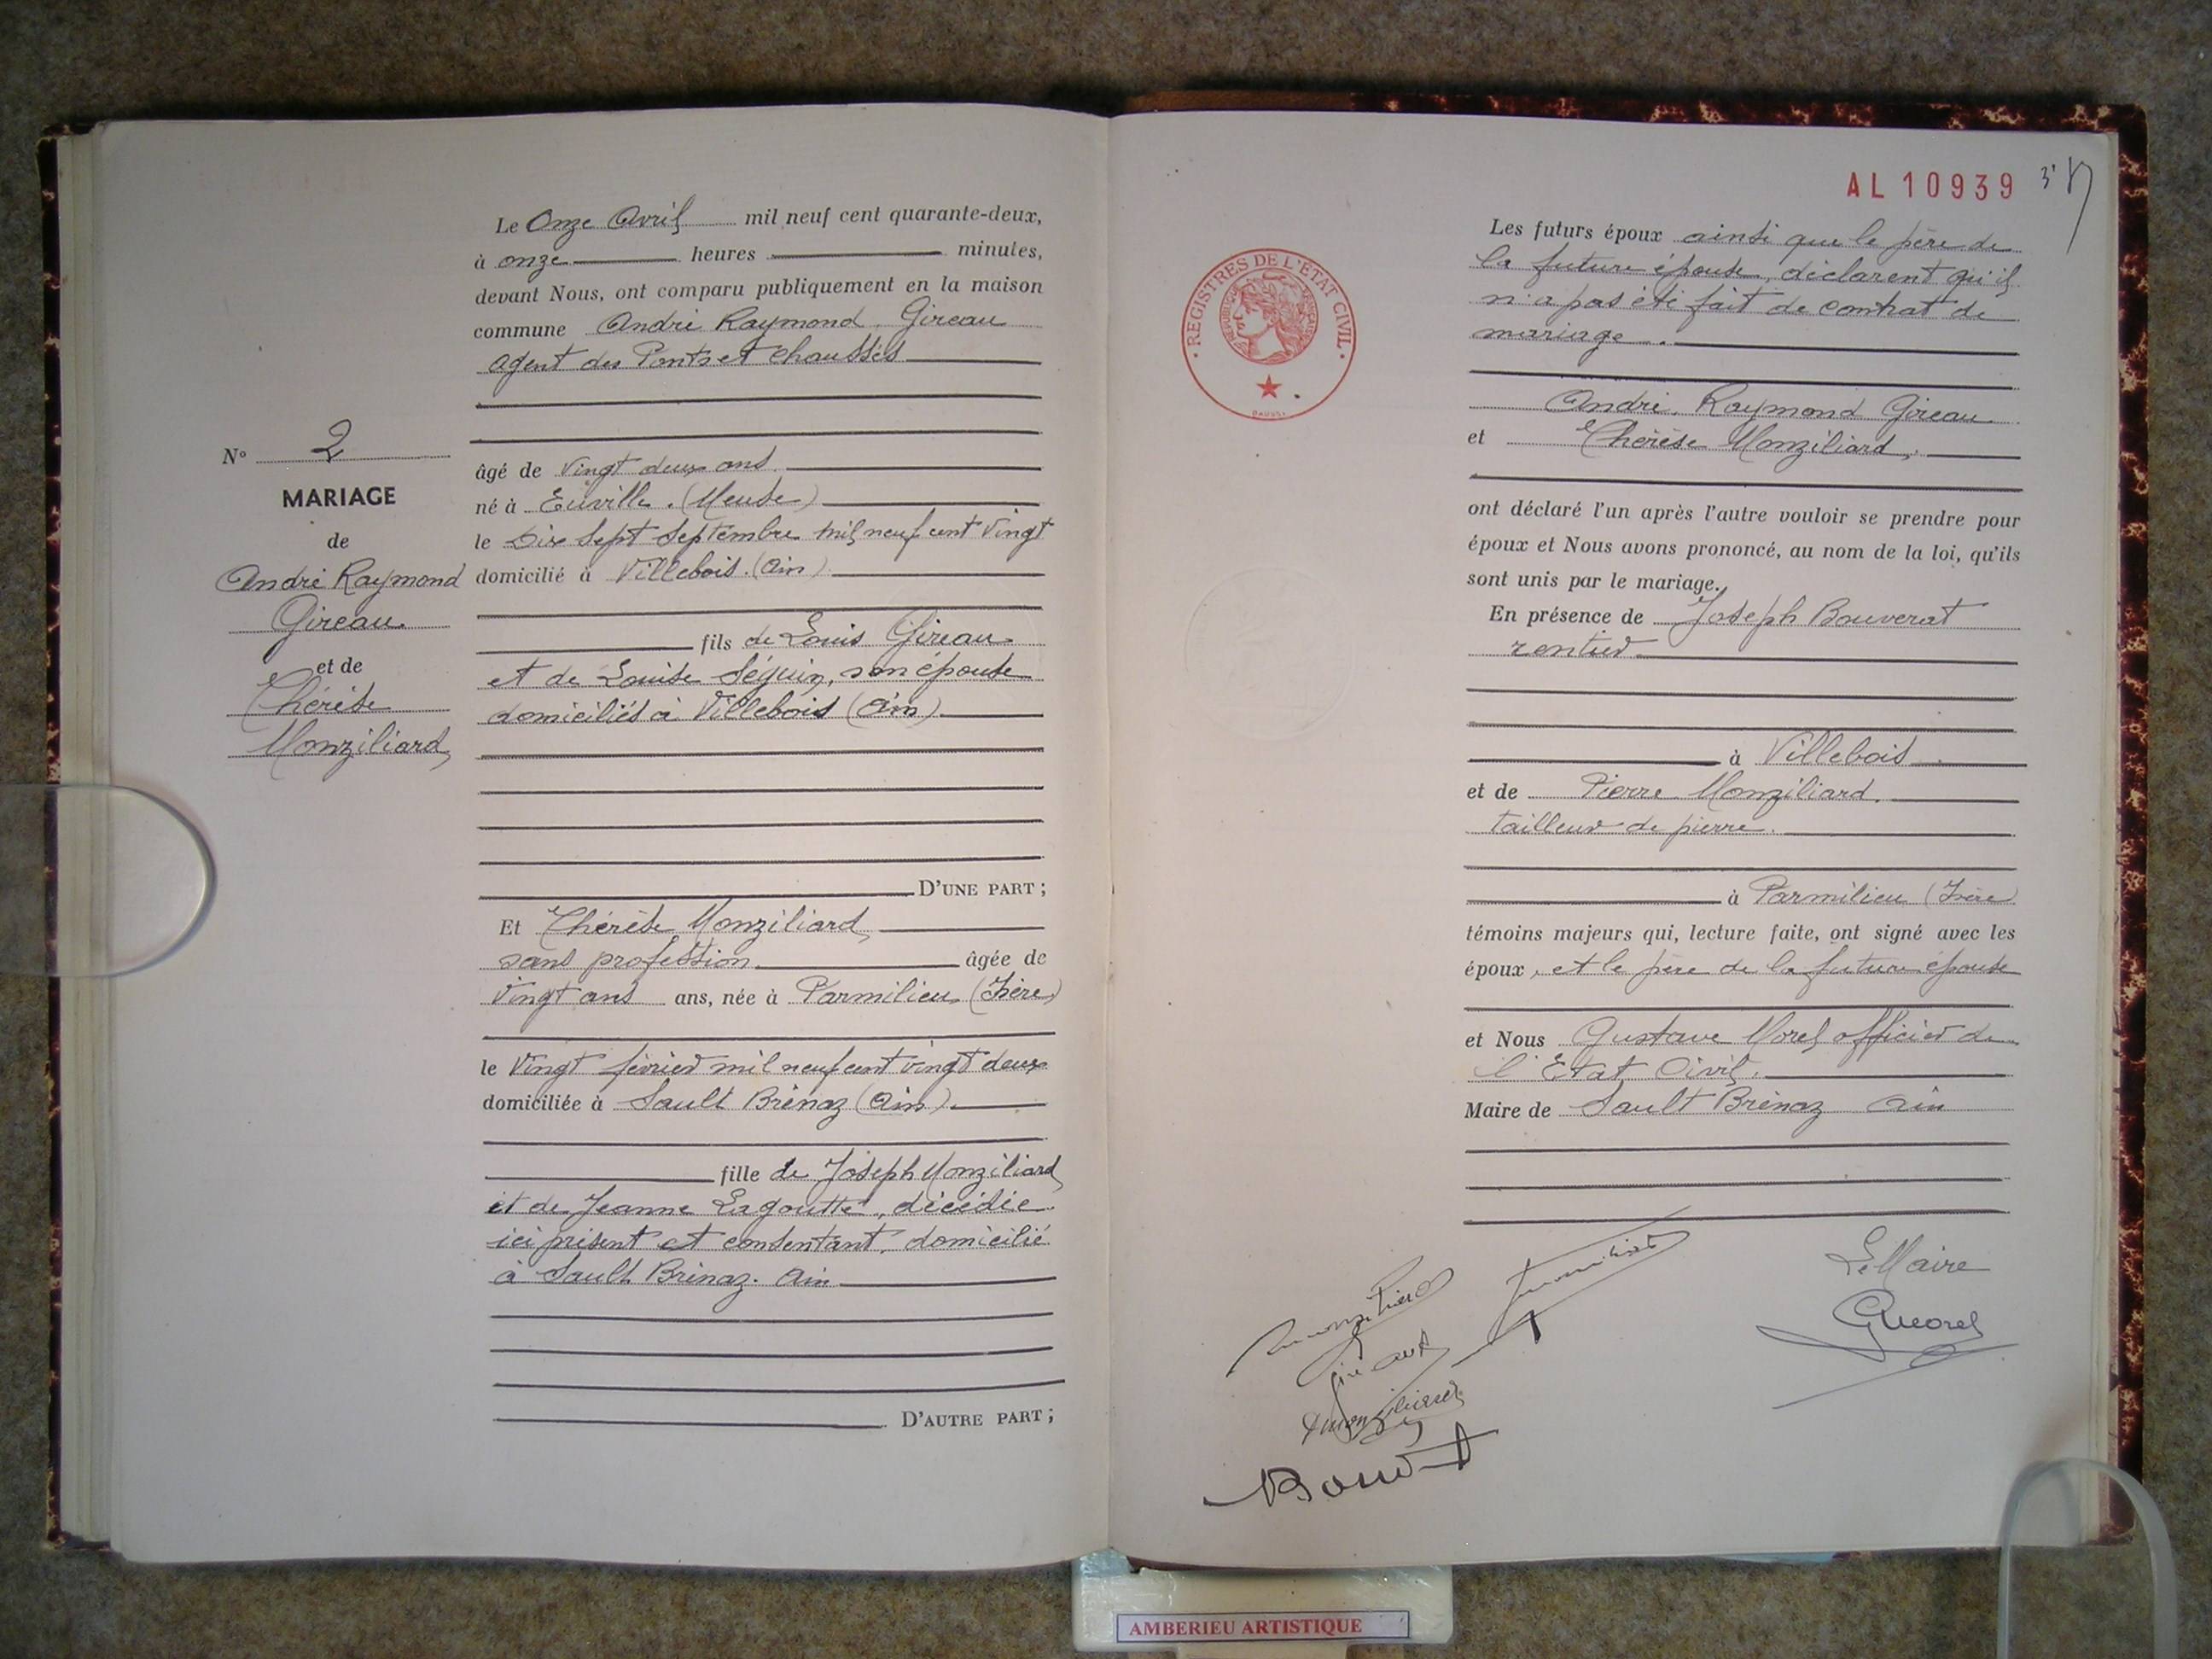 Le Onze Avril mil neuf cent quarante-deux,
à onze heures minutes,
devant Nous, ont comparu publiquement en la maison
commune André Raymond Gireau
agent des Ponts et chaussées
N° 2
MARIAGE
de
André Raymond
Gireau
et de
Thérèse
Monziliard
âgé de vingt deux ans
né à Euville. (Meuse)
le Dix sept septembre mil neuf cent vingt
domicilié à Villebois. (Ain)
fils de Louis Gireau
et de Louise Séguin, son épouse
domiciliés à Villebois (Ain)
D'UNE PART ;
Et Thérèse Monziliard
sans profession âgée de
vingt ans ans, née à Parmilieu (Isère)
le vingt février mil neuf cent vingt deux
domiciliée à Sault Brénaz (Ain)
fille de Joseph Monziliard
et de Jeanne Lagoutte, décédée
ici présent et consentant, domicilié
à Sault Brénaz. Ain
D'AUTRE PART ;
AL 10939
REGISTRES DE L'ETAT CIVIL
Les futurs époux ainsi que le père de
la future épouse, déclarent qu'il
n'a pas été fait de contrat de
mariage.
André Raymond Gireau
et Thérèse Monziliard,
ont déclaré l'un après l'autre vouloir se prendre pour
époux et Nous avons prononcé, au nom de la loi, qu'ils
sont unis par le mariage.
En présence de Joseph Bouverat
rentier
à Villebois
et de Pierre Monziliard,
tailleur de pierre.
à Parmilieu (Isère
témoins majeurs qui, lecture faite, ont signé avec les
époux, et le père de la future épouse
et Nous Gustave Morel officier de
l'Etat Civil.
Maire de Sault Brénaz Ain
Le Maire
GMorel
AMBERIEU ARTISTIQUE